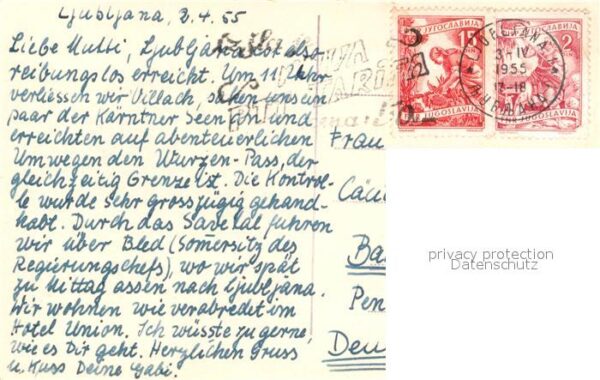 Ljubljana, 3.4.55
Liebe Mutti, Ljubljana wär also
reibungslos erreicht. Um 11 Uhr
verliessen wir Villach, sahen uns ein
paar der Kärntner Seen an und
erreichten auf abenteuerlichen
Umwegen den Wurzen-Pass, der
gleichzeitig Grenze ist. Die Kontrol-
le wurde sehr grosszügig gehand-
habt. Durch das Savetal fuhren
wir über Bled (Somersitz des
Regierungschefs), wo wir spät
zu Mittag assen nach Ljubljana.
Wir wohnen wie verabredet im
Hotel Union. Ich wüsste zu gerne,
wie es Dir geht. Herzlichen Gruss
u. Kuss Deine Gabi.
Frau
Cäci
Ba
Pen
Deu
15
JUGOSLAVIJA
2
JUGOSLAVIJA
LJUBLJANA
3. IV
1955
17-18
privacy protection
Datenschutz